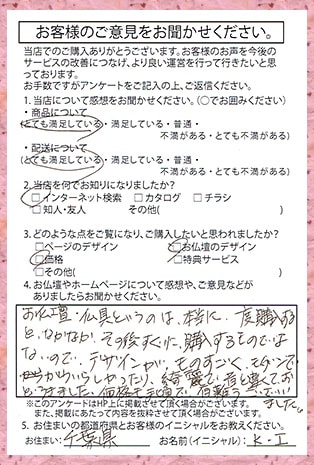 お客様のご意見をお聞かせください。
当店でのご購入ありがとうございます。お客様のお声を今後の
サービスの改善につなげ、より良い運営を行って行きたいと思
っております。
お手数ですがアンケートをご記入の上、ご返信ください。
1. 当店について感想をお聞かせください。(○でお囲みください)
・商品について
(とても満足している・満足している・普通・
不満がある・とても不満がある)
・配送について
(とても満足している・満足している・普通・
不満がある・とても不満がある)
2. 当店を何でお知りになりましたか?
□インターネット検索 □カタログ □チラシ
□知人・友人 その他( )
3. どのような点をご覧になり、ご購入したいと思われましたか?
□ページのデザイン □お仏壇のデザイン
□価格 □特典サービス
□その他( )
4. お仏壇やホームページについて感想や、ご意見などが
ありましたらお聞かせください。
お仏壇・仏具というのは、本当に、一度購入する
と、なかなか、その後すぐに、購入するものでは
ないので、デザインが、ものすごく、モダンで
かわいらしかったり、綺麗で
価格も手頃で
※このアンケートはHP上に掲載させて頂く場合がございます。
また、掲載にあたって内容を抜粋させて頂く場合がございます。
5. お住まいの都道府県とお客様のイニシャルをお教えください。
お住まい: 千葉県 お名前(イニシャル): K・I